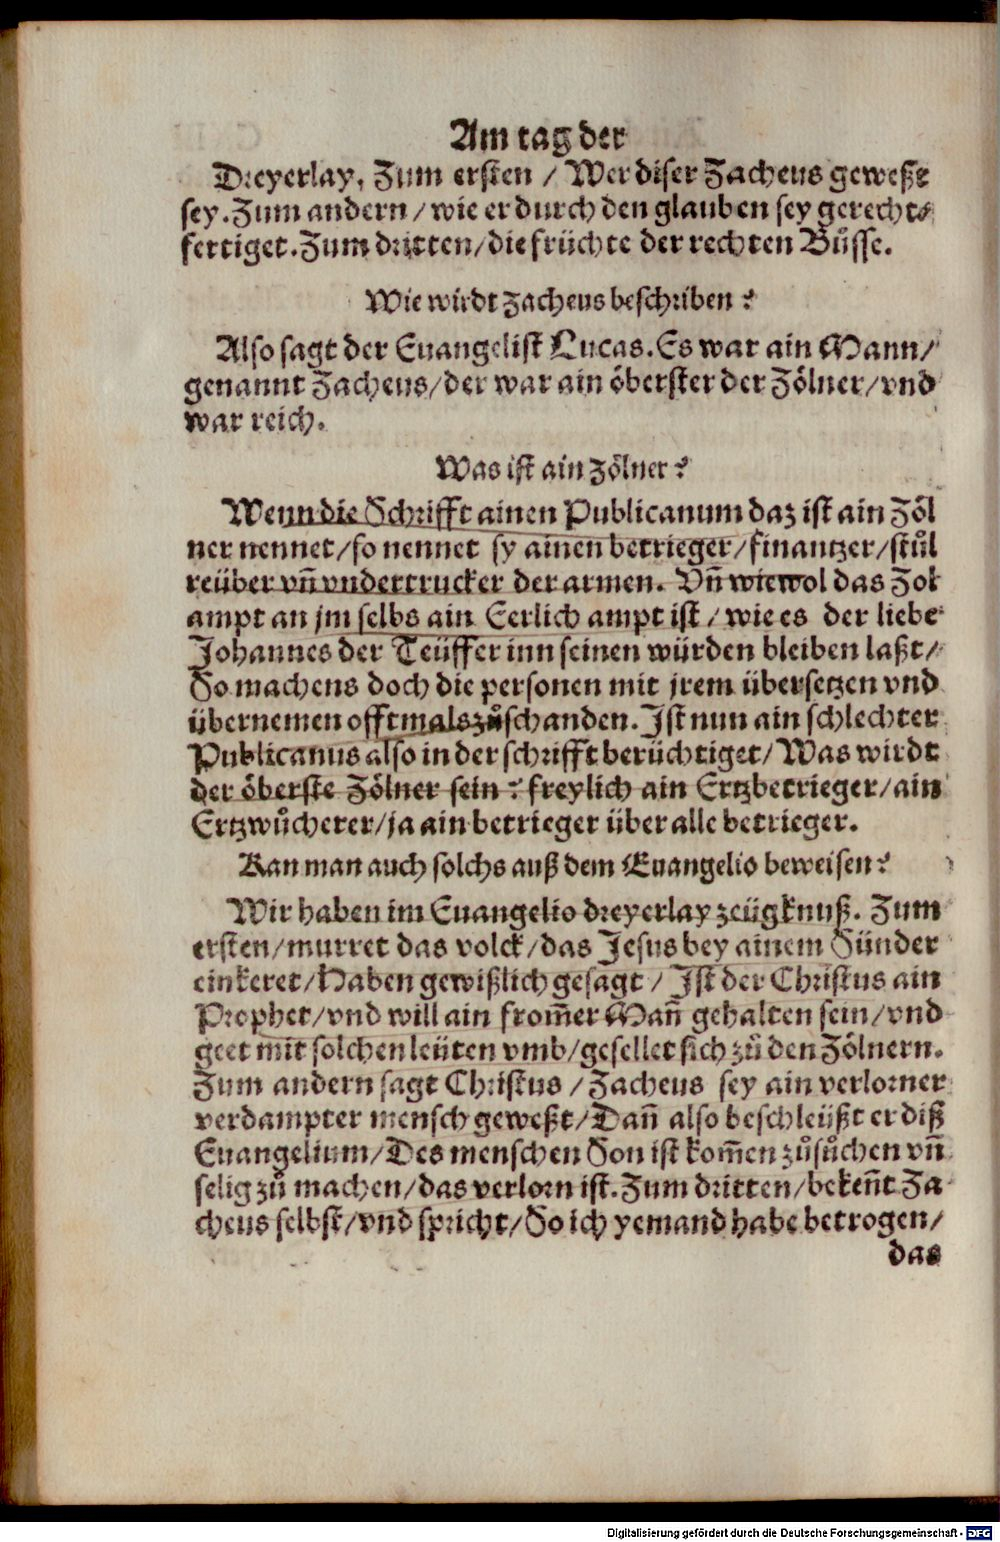 Am tag der
Dreyerlay, Zum ersten / Wer diser Zacheus geweßt
sey. Zum andern / wie er durch den glauben sey gerecht⸗
fertiget. Zum dritten / die früchte der rechten Bůsse.
Wie wirdt Zacheus beschriben?
Also sagt der Euangelist Lucas. Es war ain Mann /
genannt Zacheus / der war ain öberster der Zölner / vnd
war reich.
Was ist ain Zölner?
Wenn die Schrifft ainen Publicanum daz ist ain Zöl
ner nennet / so nennet sy ainen betrieger / finantzer / stůl
reüber vñ vndertrucker der armen. Vñ wiewol das Zol
ampt an jm selbs ain Eerlich ampt ist / wie es der liebe
Johannes der Teüffer inn seinen würden bleiben laßt /
So machens doch die personen mit jrem übersetzen vnd
übernemen offtmals zůschanden. Ist nun ain schlechter
Publicanus also in der schrifft berüchtiget / Was wirdt
der öberste Zölner sein? freylich ain Ertzbetrieger / ain
Ertzwůcherer / ja ain betrieger über alle betrieger.
Kan man auch solchs auß dem Euangelio beweisen?
Wir haben im Euangelio dreyerlay zeügknuß. Zum
ersten / murret das volck / das Jesus bey ainem Sünder
einkeret / Haben gewißlich gesagt / Ist der Christus ain
Prophet / vnd will ain from̃er Mañ gehalten sein / vnd
geet mit solchen leüten vmb / gesellet sich zů den Zölnern.
Zum andern sagt Christus / Zacheus sey ain verlorner
verdampter mensch geweßt / Dañ also beschleüßt er diß
Euangelium / Des menschen Son ist kom̃en zůsůchen vñ
selig zů machen / das verlorn ist. Zum dritten / bekeñt Za
cheus selbst / vnd spricht / So ich yemand habe betrogen /
das
Digitalisierung gefördert durch die Deutsche Forschungsgemeinschaft - DFG